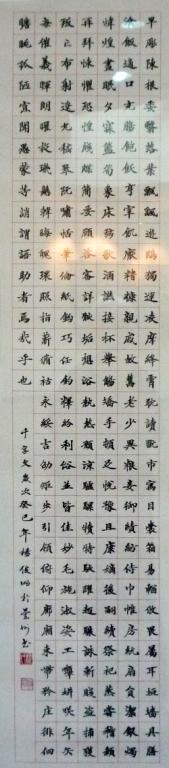 早彫陳根委翳落葉飄颻遊鵾獨運凌摩絳霄耽讀翫市寓目囊箱易輶攸畏屬耳垣牆具膳
飡飯適口充腸飽飫烹宰飢厭糟糠親戚故舊老少異糧妾御績紡侍巾帷房紈扇員潔銀燭
煒煌晝眠夕寐藍筍象床弦歌酒讌接杯舉觴矯手頓足悅豫且康嫡後嗣續祭祀蒸嘗稽顙
再拜悚懼恐惶牋牒簡要顧答審詳骸垢想浴執熱願涼驢騾犢特駭躍超驤誅斬賊盜捕獲
叛亡布射遼丸嵇琴阮嘯恬筆倫紙鈞巧任釣釋紛利俗並皆佳妙毛施淑姿工顰妍笑年矢
每催曦暉朗曜璇璣懸斡晦魄環照指薪修祜永綏吉劭矩步引領俯仰廊廟束帶矜莊徘徊
瞻眺孤陋寡聞愚蒙等誚謂語助者焉哉乎也
千字文歲次癸巳年楊俊於州書